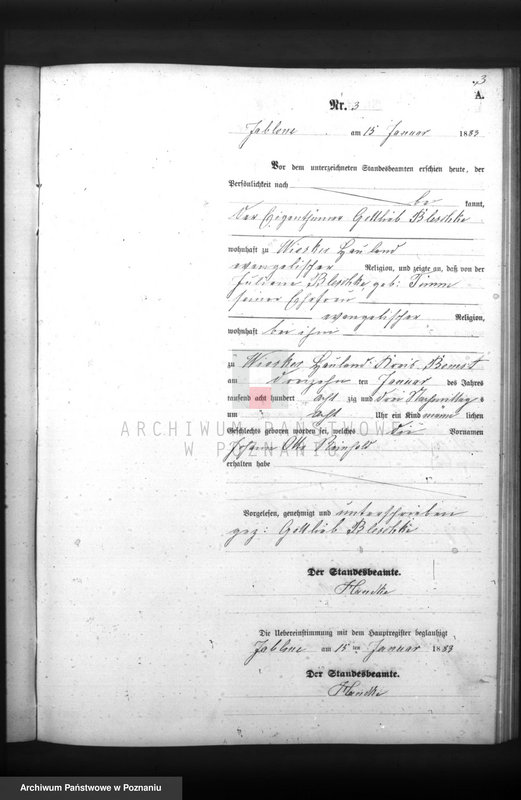 3
A.
Nr. 3
Jablone am 15 Januar 1883
Vor dem unterzeichneten Standesbeamten erschien heute, der
Persönlichkeit nach
be kannt,
der Eigenthümer Gottlieb Bleschke
wohnhaft zu Wiosker Hauland
evangelischer Religion, und zeigte an, daß von der
Juliane Bleschke geb: Timm
seiner Ehefrau
evangelischer Religion,
wohnhaft bei ihm
zu Wiosker Hauland Kreis Bomst
am dreizehn ten Januar des Jahres
tausend acht hundert acht zig und drei Nachmittag s
um acht Uhr ein Kind männ lichen
Geschlechts geboren worden sei, welches die Vornamen
Johann Otto Reinhold
erhalten habe
Vorgelesen, genehmigt und unterschrieben
gez: Gottlieb Bleschke
Der Standesbeamte.
Die Uebereinstimmung mit dem Hauptregister beglaubigt
Jablone am 15 ten Januar 1883
Der Standesbeamte.
ARCHIWUM PAŃSTWOWE
W POZNANIU
Archiwum Państwowe w Poznaniu